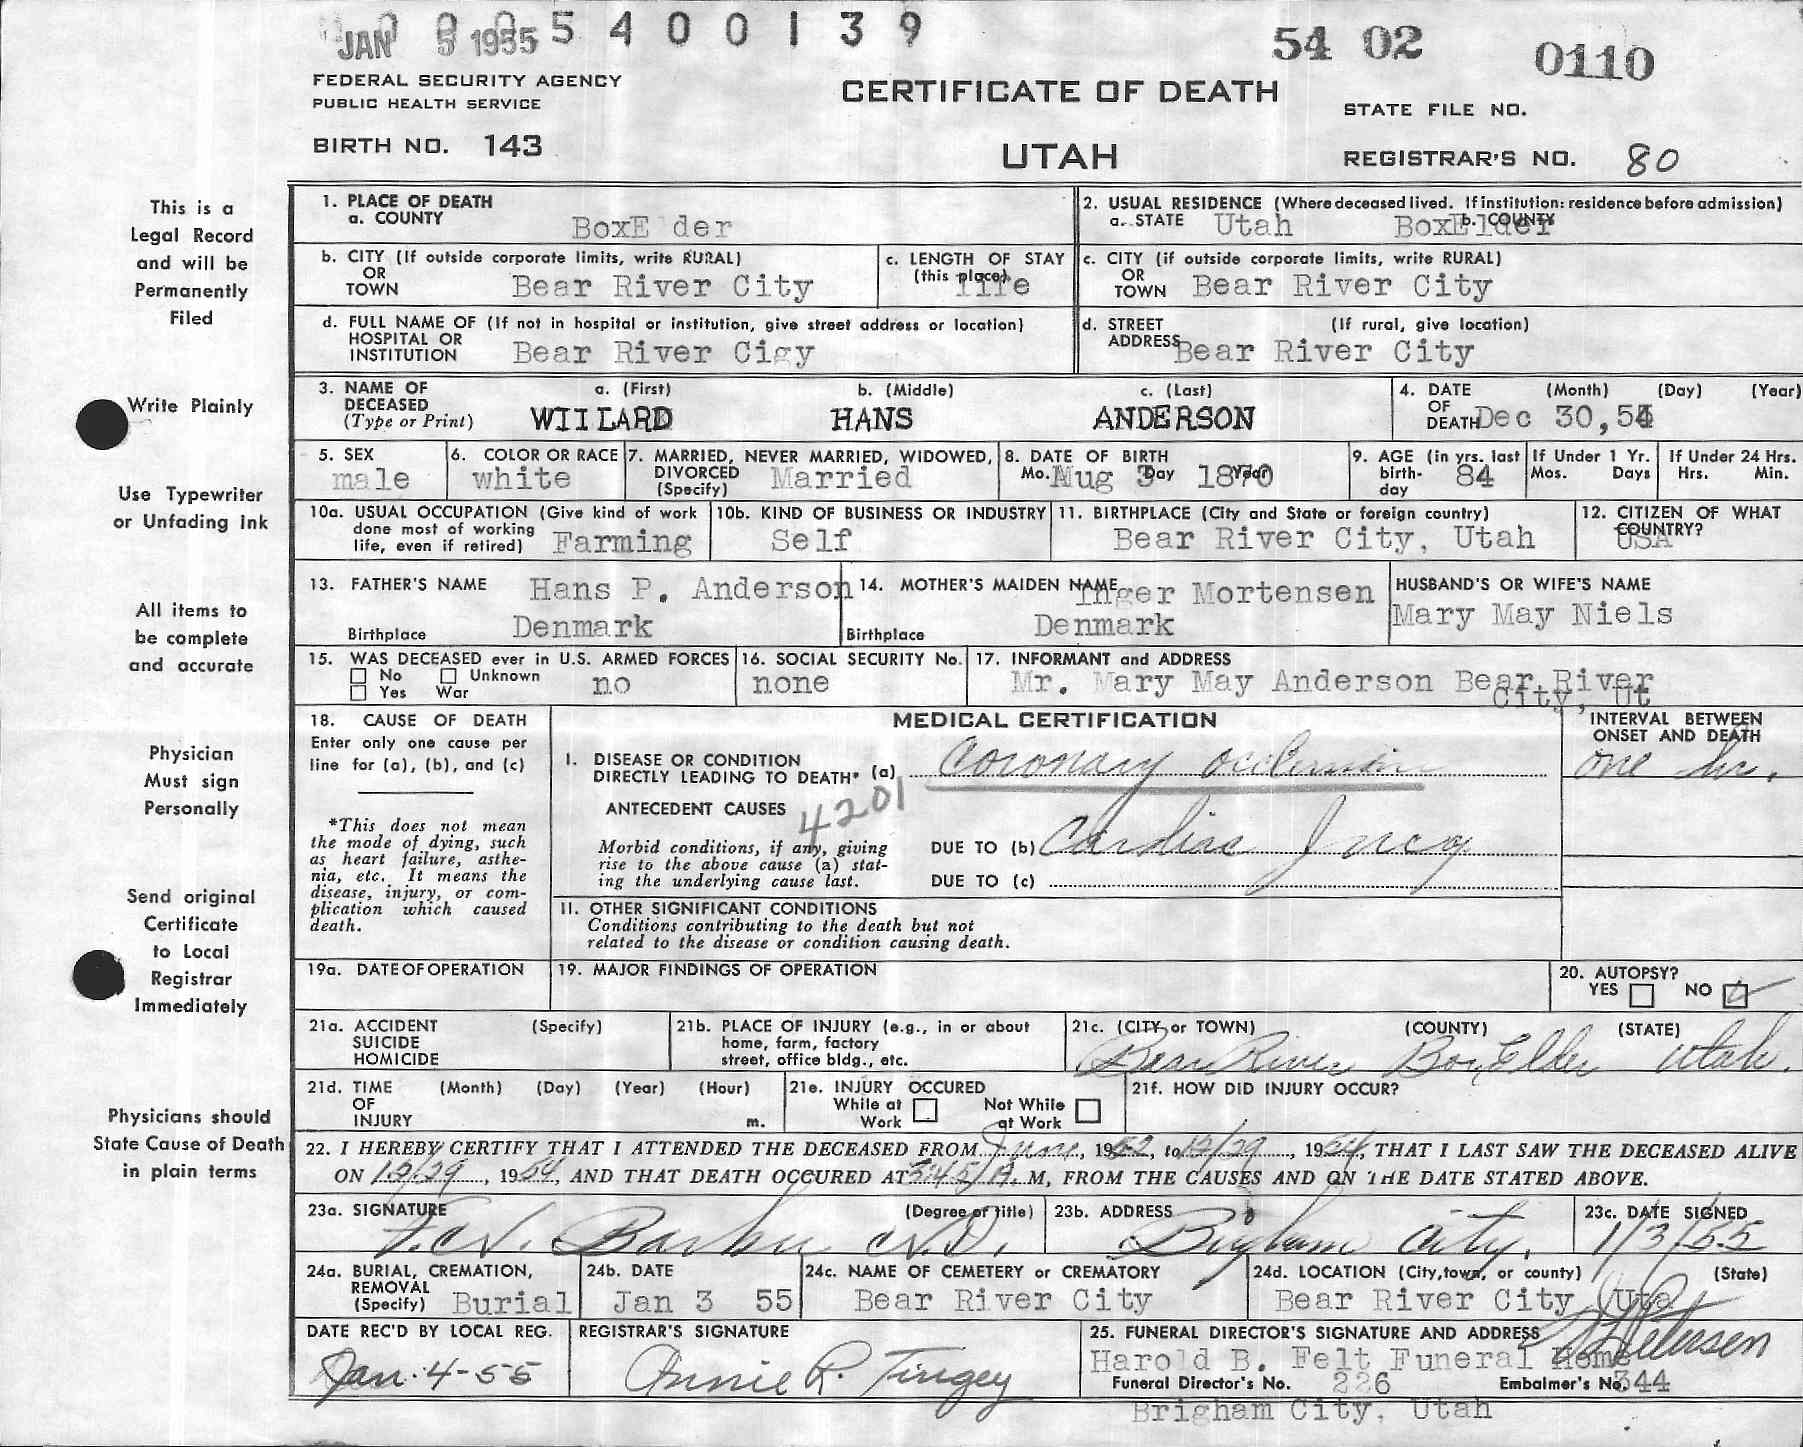 JAN 5 1955 5 4 0 0 1 3 9
54 02 0110
FEDERAL SECURITY AGENCY
PUBLIC HEALTH SERVICE
CERTIFICATE OF DEATH
STATE FILE NO.
BIRTH NO. 143
UTAH
REGISTRAR'S NO. 80
This is a
Legal Record
and will be
Permanently
Filed
Write Plainly
Use Typewriter
or Unfading Ink
All items to
be complete
and accurate
Physician
Must sign
Personally
Send original
Certificate
to Local
Registrar
Immediately
Physicians should
State Cause of Death
in plain terms
1. PLACE OF DEATH
a. COUNTY BoxE der
2. USUAL RESIDENCE (Where deceased lived. If institution: residence before admission)
a. STATE Utah b. COUNTY BoxElder
b. CITY (If outside corporate limits, write RURAL)
OR
TOWN Bear River City
c. LENGTH OF STAY
(this place) life
c. CITY (if outside corporate limits, write RURAL)
OR
TOWN Bear River City
d. FULL NAME OF (If not in hospital or institution, give street address or location)
HOSPITAL OR
INSTITUTION Bear River Cigy
d. STREET (If rural, give location)
ADDRESS Bear River City
3. NAME OF DECEASED (Type or Print)
a. (First) b. (Middle) c. (Last)
WIILARD HANS ANDERSON
4. DATE (Month) (Day) (Year)
OF
DEATH Dec 30, 54
5. SEX
male
6. COLOR OR RACE
white
7. MARRIED, NEVER MARRIED, WIDOWED,
DIVORCED
(Specify) Married
8. DATE OF BIRTH
Mo. Day Year
Aug 3 1870
9. AGE (in yrs. last
birth-
day 84
If Under 1 Yr.
Mos. Days
If Under 24 Hrs.
Hrs. Min.
10a. USUAL OCCUPATION (Give kind of work
done most of working
life, even if retired) Farming
10b. KIND OF BUSINESS OR INDUSTRY
Self
11. BIRTHPLACE (City and State or foreign country)
Bear River City, Utah
12. CITIZEN OF WHAT
COUNTRY?
USA
13. FATHER'S NAME Hans P. Anderson
Birthplace Denmark
14. MOTHER'S MAIDEN NAME Inger Mortensen
Birthplace Denmark
HUSBAND'S OR WIFE'S NAME
Mary May Niels
15. WAS DECEASED ever in U.S. ARMED FORCES
No Unknown
Yes War no
16. SOCIAL SECURITY No.
none
17. INFORMANT and ADDRESS
Mr. Mary May Anderson Bear River
City, Ut
18. CAUSE OF DEATH
Enter only one cause per
line for (a), (b), and (c)
*This does not mean
the mode of dying, such
as heart failure, asthe-
nia, etc. It means the
disease, injury, or com-
plication which caused
death.
MEDICAL CERTIFICATION
INTERVAL BETWEEN
ONSET AND DEATH
I. DISEASE OR CONDITION
DIRECTLY LEADING TO DEATH* (a) Coronary occlusion one hr.
ANTECEDENT CAUSES 4201
Morbid conditions, if any, giving
rise to the above cause (a) stat-
ing the underlying cause last.
DUE TO (b) Cardiac
DUE TO (c)
II. OTHER SIGNIFICANT CONDITIONS
Conditions contributing to the death but not
related to the disease or condition causing death.
19a. DATE OF OPERATION
19. MAJOR FINDINGS OF OPERATION
20. AUTOPSY?
YES NO
21a. ACCIDENT (Specify)
SUICIDE
HOMICIDE
21b. PLACE OF INJURY (e.g., in or about
home, farm, factory
street, office bldg., etc.
21c. (CITY or TOWN) (COUNTY) (STATE)
Bear River Box Elder Utah.
21d. TIME (Month) (Day) (Year) (Hour)
OF
INJURY m.
21e. INJURY OCCURED
While at Not While
Work at Work
21f. HOW DID INJURY OCCUR?
22. I HEREBY CERTIFY THAT I ATTENDED THE DECEASED FROM June, 1952, to 12/29, 1954, THAT I LAST SAW THE DECEASED ALIVE
ON 12/29, 1954, AND THAT DEATH OCCURED AT 3:45 A. M, FROM THE CAUSES AND ON THE DATE STATED ABOVE.
23a. SIGNATURE (Degree of title)
M.D.
23b. ADDRESS
Brigham City.
23c. DATE SIGNED
1/3/55
24a. BURIAL, CREMATION,
REMOVAL
(Specify) Burial
24b. DATE
Jan 3 55
24c. NAME OF CEMETERY or CREMATORY
Bear River City
24d. LOCATION (City, town, or county) (State)
Bear River City, Uta
DATE REC'D BY LOCAL REG.
Jan. 4-55
REGISTRAR'S SIGNATURE
Annie R. Tingey
25. FUNERAL DIRECTOR'S SIGNATURE AND ADDRESS
Petersen
Harold B. Felt Funeral Home
Funeral Director's No. 226 Embalmer's No. 344
Brigham City, Utah